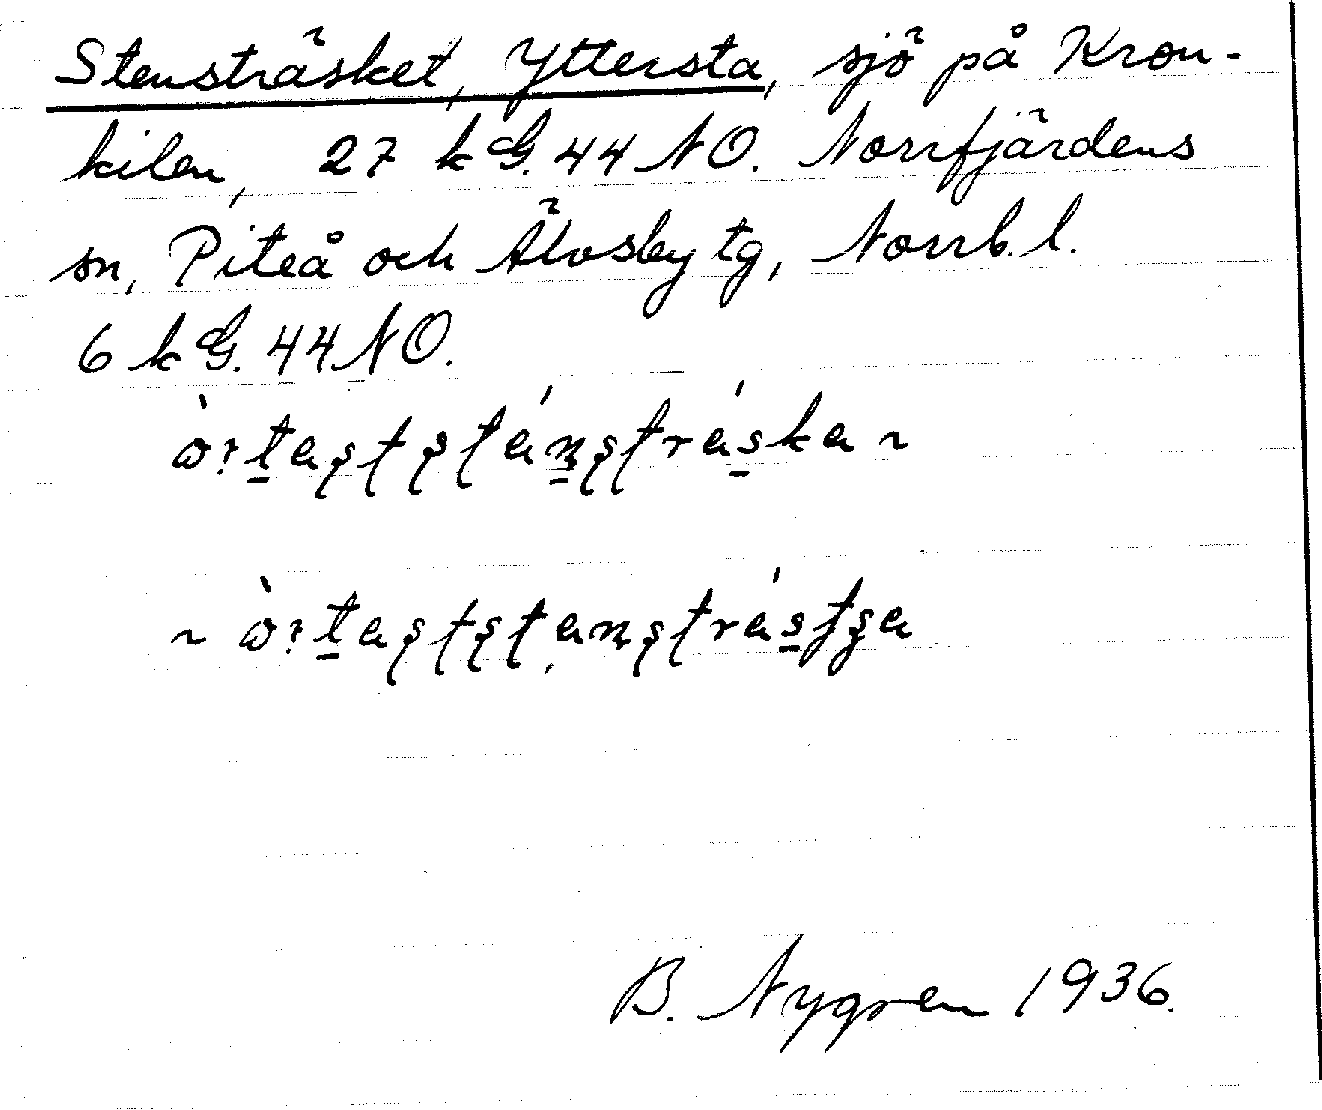 Stensträsket, Yttersta, sjö på Kron-
kilen, 27 k G. 44 NO. Norrfjärdens
sn, Piteå och Älvsby tg, Norrb. l.
6 k G. 44 NO.
~
~
B. Nygren 1936.